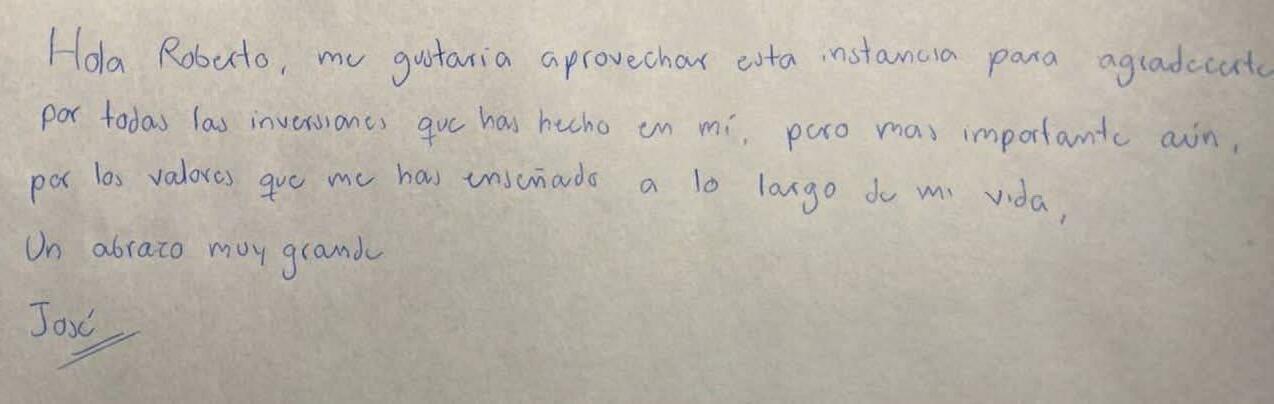 Hola Roberto, me gustaria aprovechar esta instancia para agradecerte
por todas las inversiones que has hecho en mí, pero mas importante aún,
por los valores que me has enseñado a lo largo de mi vida,
Un abrazo muy grande
José